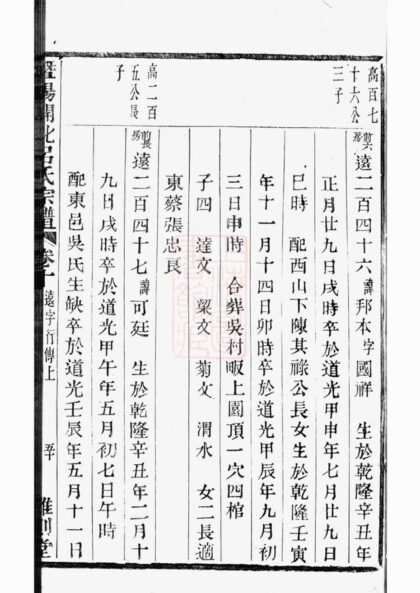 高百七
十六公
三子
前六房遠二百四十六諱邦本字國祥 生於乾隆辛丑年
正月廿九日戌時卒於道光甲申年七月廿九日
巳時 配西山下陳其祿公長女生於乾隆壬寅
年十一月十四日卯時卒於道光甲辰年九月初
三日申時 合葬吳村畈上園頂一穴四棺
子四 達文 粲文 菊文 渭水 女二長適
東蔡張忠良
高二百
五公長
子
前長房遠二百四十七諱可廷 生於乾隆辛丑年二月十
九日戌時卒於道光甲午年五月初七日午時
配東邑吳氏生缺卒於道光壬辰年五月十一日
暨陽開化呂氏宗譜 卷十 遠字行傳上